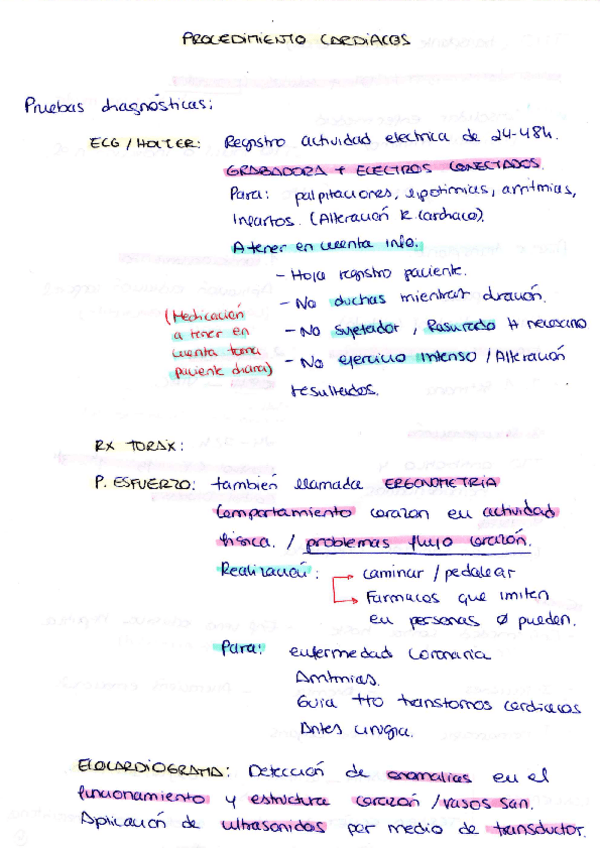 PROCEDIMIENTO CARDIACOS
Pruebas diagnósticas:
ECG / HOLTER: Registro actividad electrica de 24-48h.
GRABADORA + ELECTROS CONECTADOS.
Para: palpitaciones, lipotimias, arritmias,
Infartos. (Alteración R. Cardiaco).
A tener en cuenta info:
- Hoja registro paciente.
- No duchas mientras duración.
- No sujetador, Rasurado + necesario
- No ejercicio intenso / Alteración
resultados.
(Medicación
a tener en
cuenta toma
paciente diaria)
RX TORAX:
P. ESFUERZO: también llamada ERGONOMETRIA
Comportamiento corazon en actividad
física. / problemas flujo corazón.
Realización: caminar / pedalear
Farmacos que imiten
en personas Ø pueden.
Para: enfermedad coronaria
Arritmias.
Guia tto transtornos cardiacos
Antes cirugia.
ECOCARDIOGRAMA: Detección de anomalias en el
funcionamiento y estructura corazón / vasos san.
Aplicación de ultrasonidos por medio de transductor.